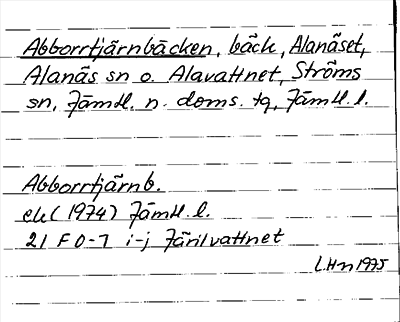 Abborrtjärnbäcken, bäck, Alanäset,
Alanäs sn o. Alavattnet, Ströms
sn, Jämtl. n. doms. tg, Jämtl. l.
Abborrtjärnb.
ek (1974) Jämtl. l.
21 F 0-1 i-j Järilvattnet
L.Hn 1975